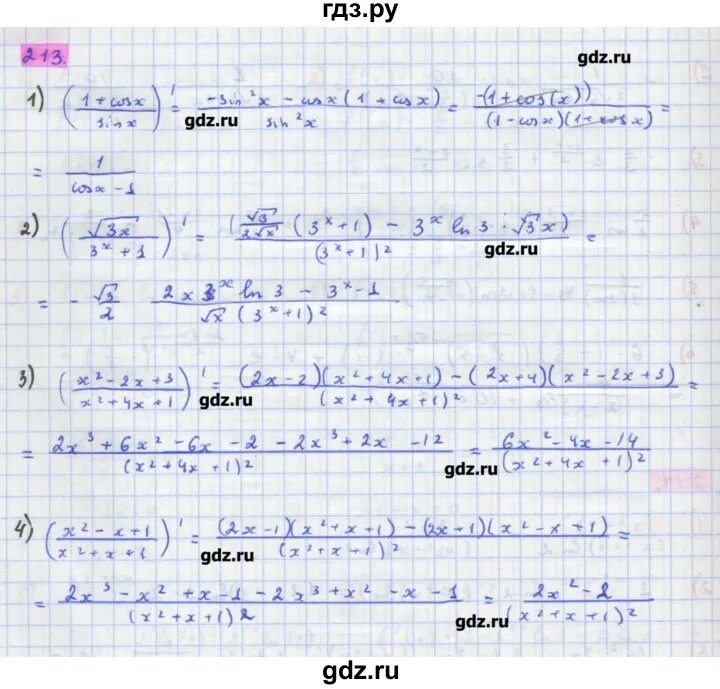 гдз.ру
213.
gdz.ru
1) ((1+cosx)/(sinx))' = (-sin²x - cosx(1+cosx))/(sin²x) = (-(1+cos(x)))/((1-cosx)(1+cosx)) =
gdz.ru
= 1/(cosx-1)
2) (√(3x)/(3ˣ+1))' = ((√3/(2√x))(3ˣ+1) - 3ˣ ln3 · √3x)/((3ˣ+1)²) =
gdz.ru
= - √3/2 (2x3ˣ ln3 - 3ˣ-1)/(√x (3ˣ+1)²)
3) ((x²-2x+3)/(x²+4x+1))' = ((2x-2)(x²+4x+1) - (2x+4)(x²-2x+3))/((x²+4x+1)²) =
gdz.ru
= (2x³+6x²-6x-2-2x³+2x-12)/((x²+4x+1)²) = (6x²-4x-14)/((x²+4x+1)²)
gdz.ru
4) ((x²-x+1)/(x²+x+1))' = ((2x-1)(x²+x+1) - (2x+1)(x²-x+1))/((x²+x+1)²) =
gdz.ru
= (2x³-x²+x-1-2x³+x²-x-1)/((x²+x+1)2) = (2x²-2)/((x²+x+1)²)
gdz.ru
gdz.ru